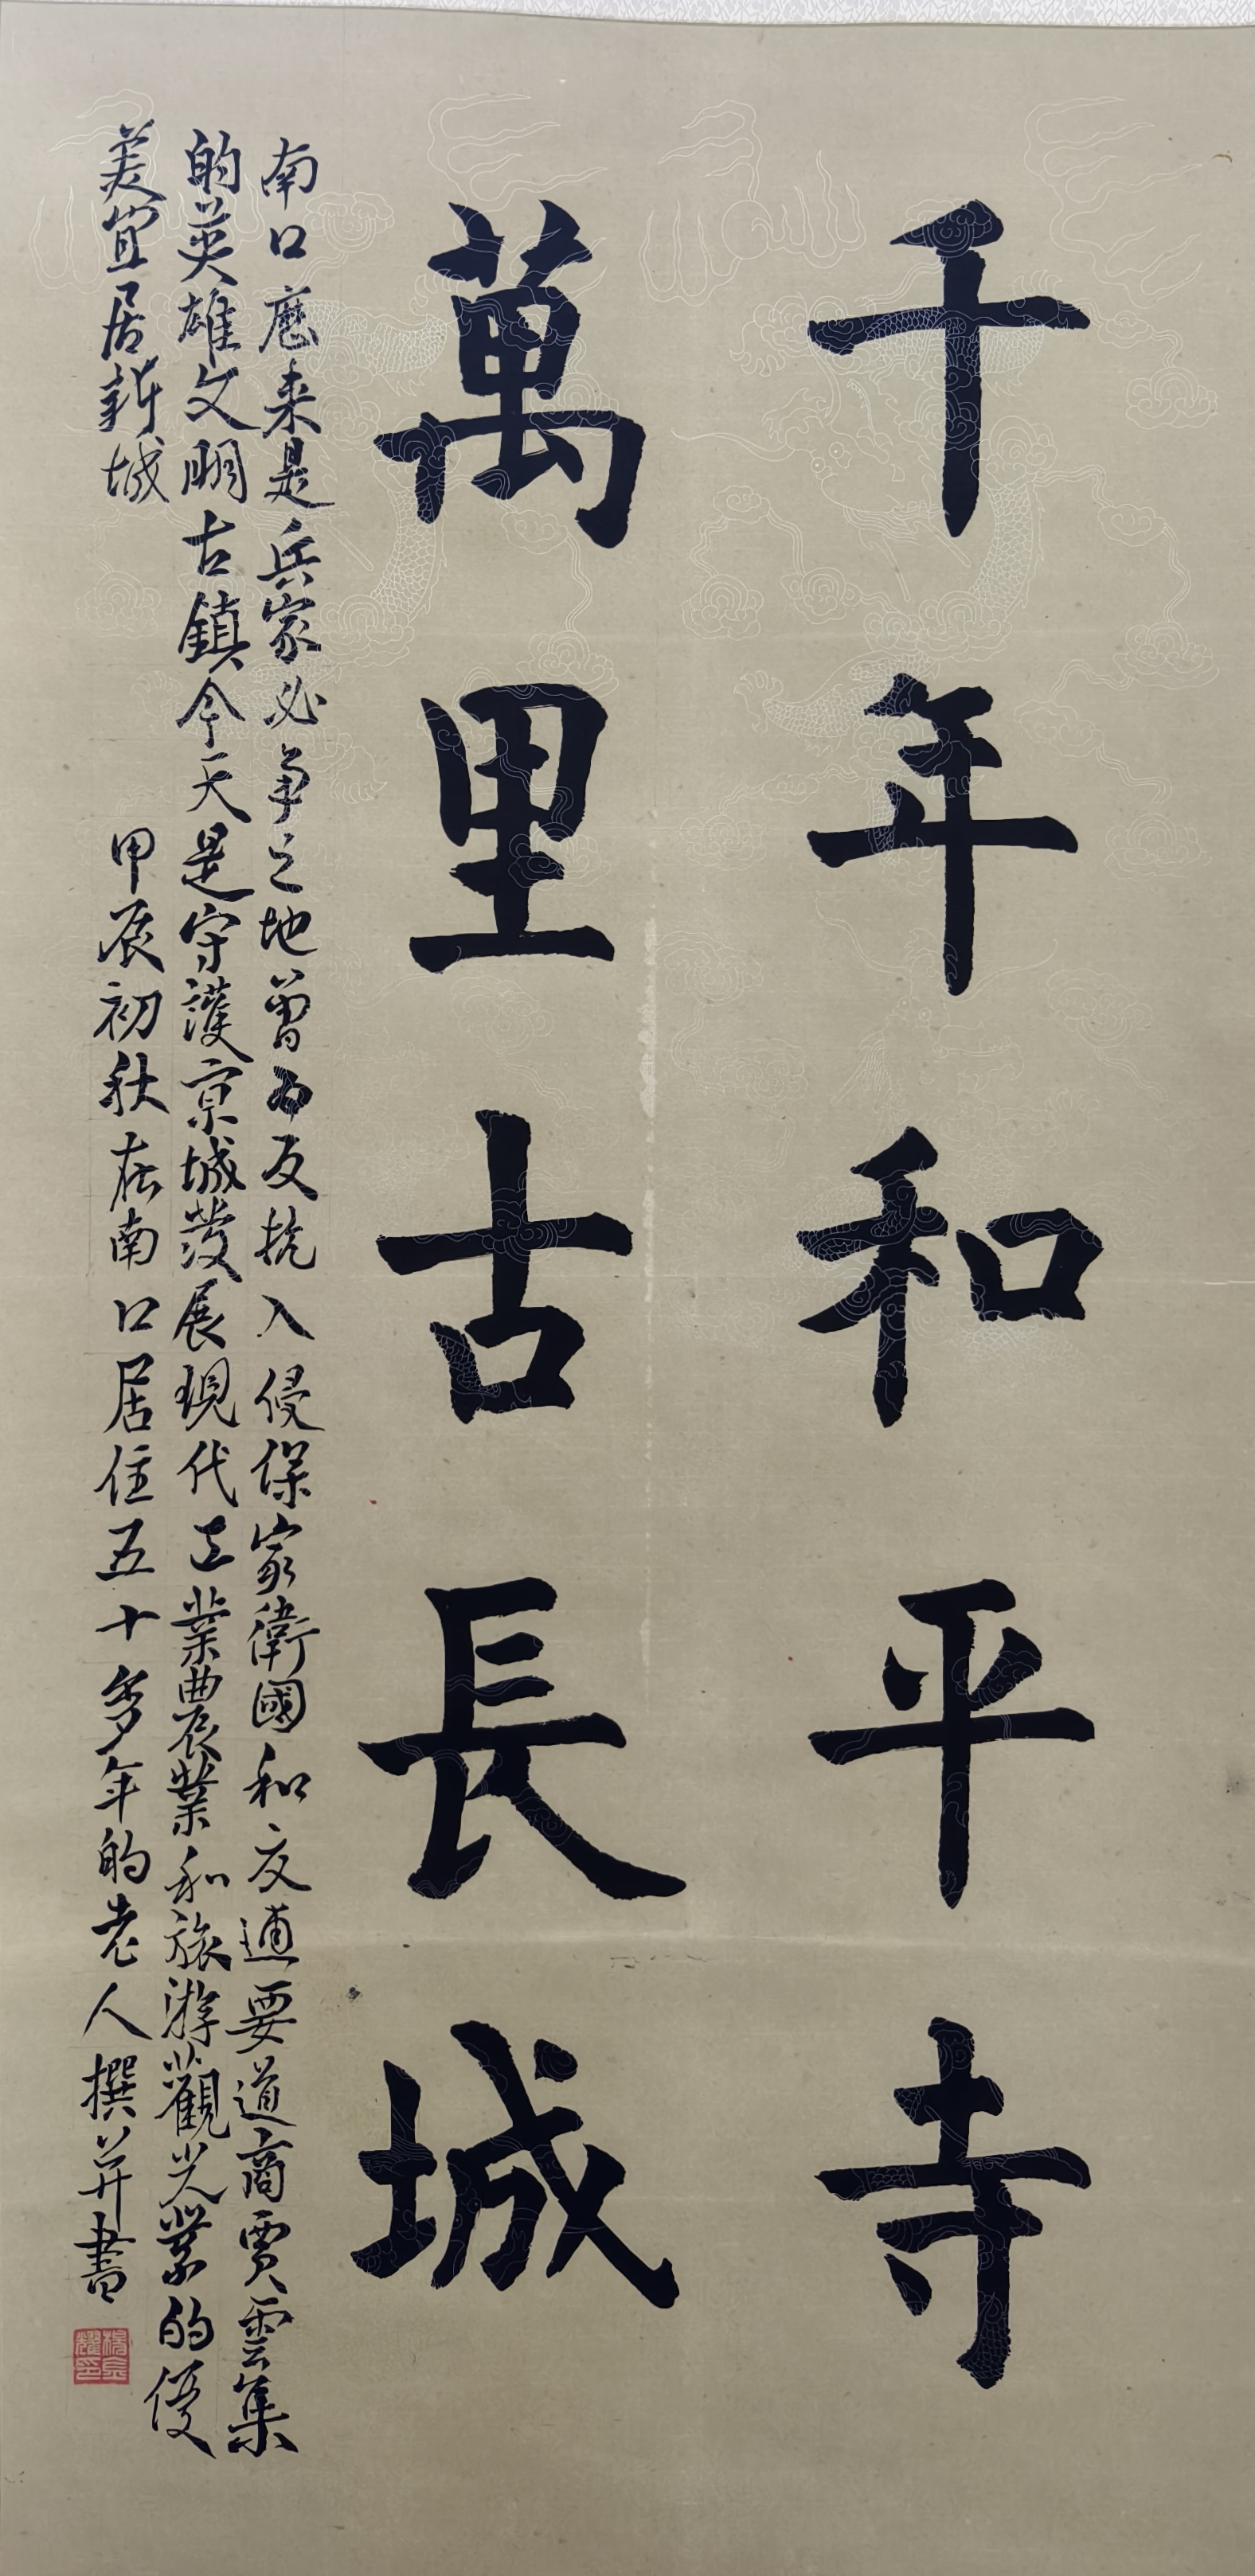 千年和平寺
萬里古長城
南口歷来是兵家必争之地曾为反抗入侵保家衛國和交通要道商賈雲集
的英雄文明古鎮今天是守護京城發展現代工業農業和旅游觀光業的優
美宜居新城
甲辰初秋在南口居住五十多年的老人撰并書